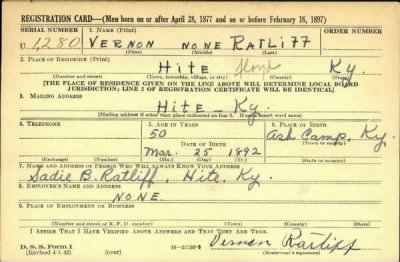 REGISTRATION CARD—(Men born on or after April 28, 1877 and on or before February 16, 1897)
SERIAL NUMBER 1. NAME (Print) ORDER NUMBER
U 1280 VERNON NONE RATLIFF
(First) (Middle) (Last)
2. PLACE OF RESIDENCE (Print)
Hite Floyd Ky.
(Number and street) (Town, township, village, or city) (County) (State)
[THE PLACE OF RESIDENCE GIVEN ON THE LINE ABOVE WILL DETERMINE LOCAL BOARD
JURISDICTION; LINE 2 OF REGISTRATION CERTIFICATE WILL BE IDENTICAL]
3. MAILING ADDRESS
Hite - Ky.
[Mailing address if other than place indicated on line 2. If same insert word same]
4. TELEPHONE 5. AGE IN YEARS 6. PLACE OF BIRTH
50 Ash Camp, Ky.
DATE OF BIRTH (Town or county)
Mar. 25 1892
(Exchange) (Number) (Mo.) (Day) (Yr.) (State or country)
7. NAME AND ADDRESS OF PERSON WHO WILL ALWAYS KNOW YOUR ADDRESS
Sadie B. Ratliff Hite, Ky.
8. EMPLOYER'S NAME AND ADDRESS
NONE
9. PLACE OF EMPLOYMENT OR BUSINESS
(Number and street or R. F. D. number) (Town) (County) (State)
I AFFIRM THAT I HAVE VERIFIED ABOVE ANSWERS AND THAT THEY ARE TRUE.
D. S. S. Form 1
(Revised 4-1-42) (over) Vernon Ratliff
(Registrant's signature)